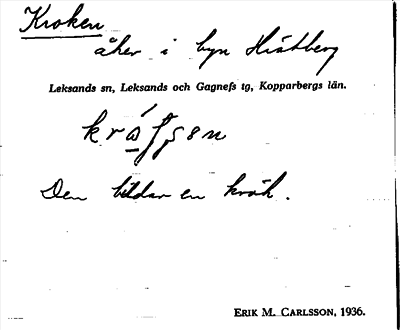 Kroken
åker i byn Hisåtberg
Leksands sn, Leksands och Gagnefs tg, Kopparbergs län.
Den bildar en krok.
ERIK M. CARLSSON, 1936.